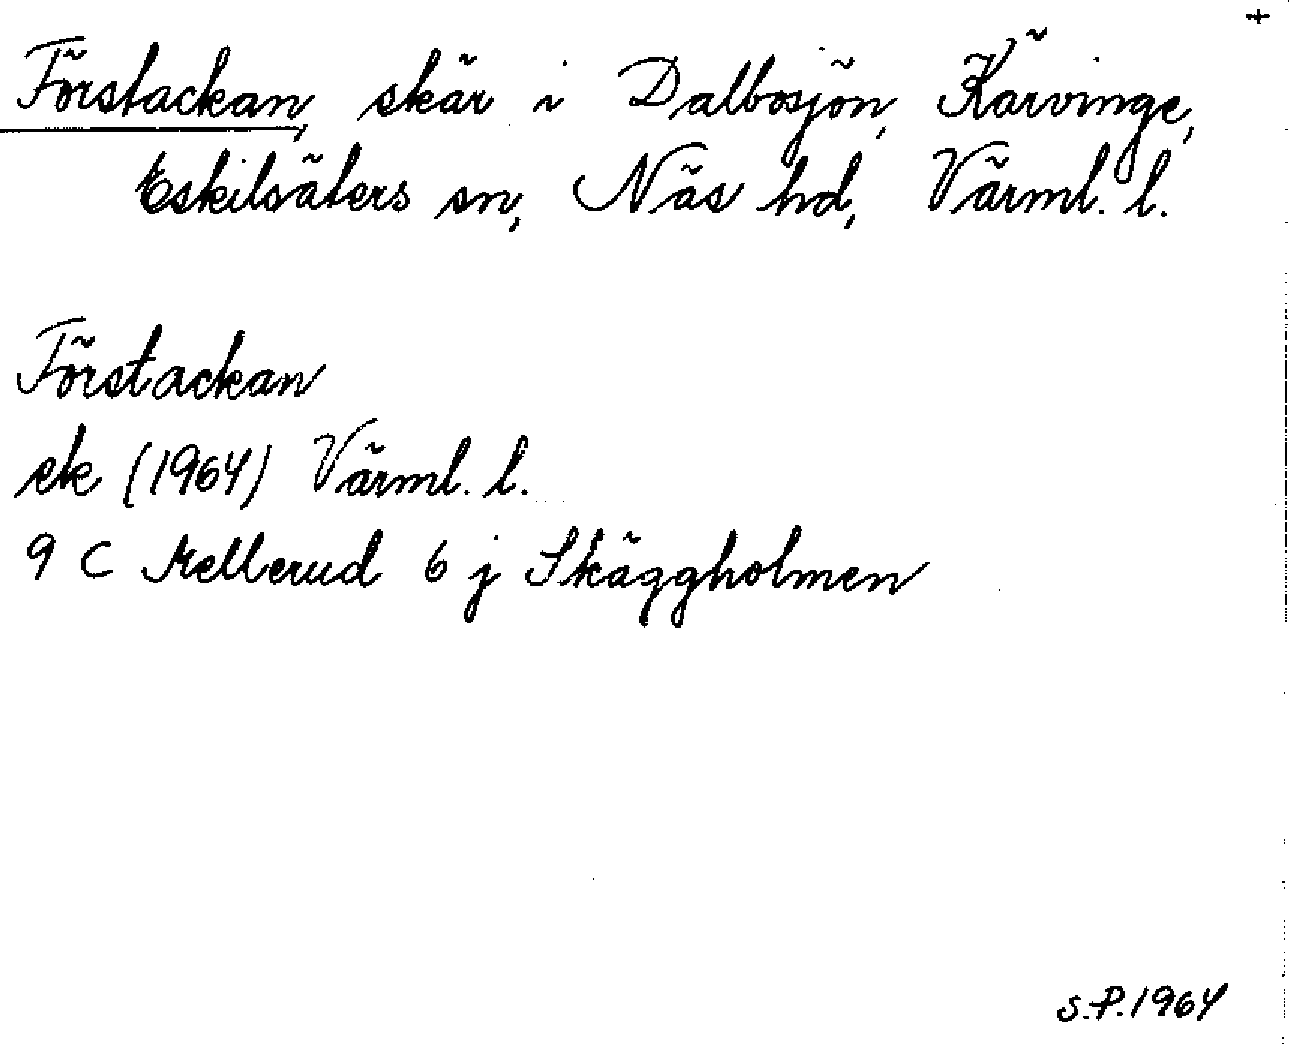 +
Förstackan, skär i Dalbosjön, Kärvinge,
Eskilsäters sn, Näs hd, Värml. l.
Förstackan
ek (1964) Värml. l.
9 C Mellerud 6 j Skäggholmen
S.P. 1964